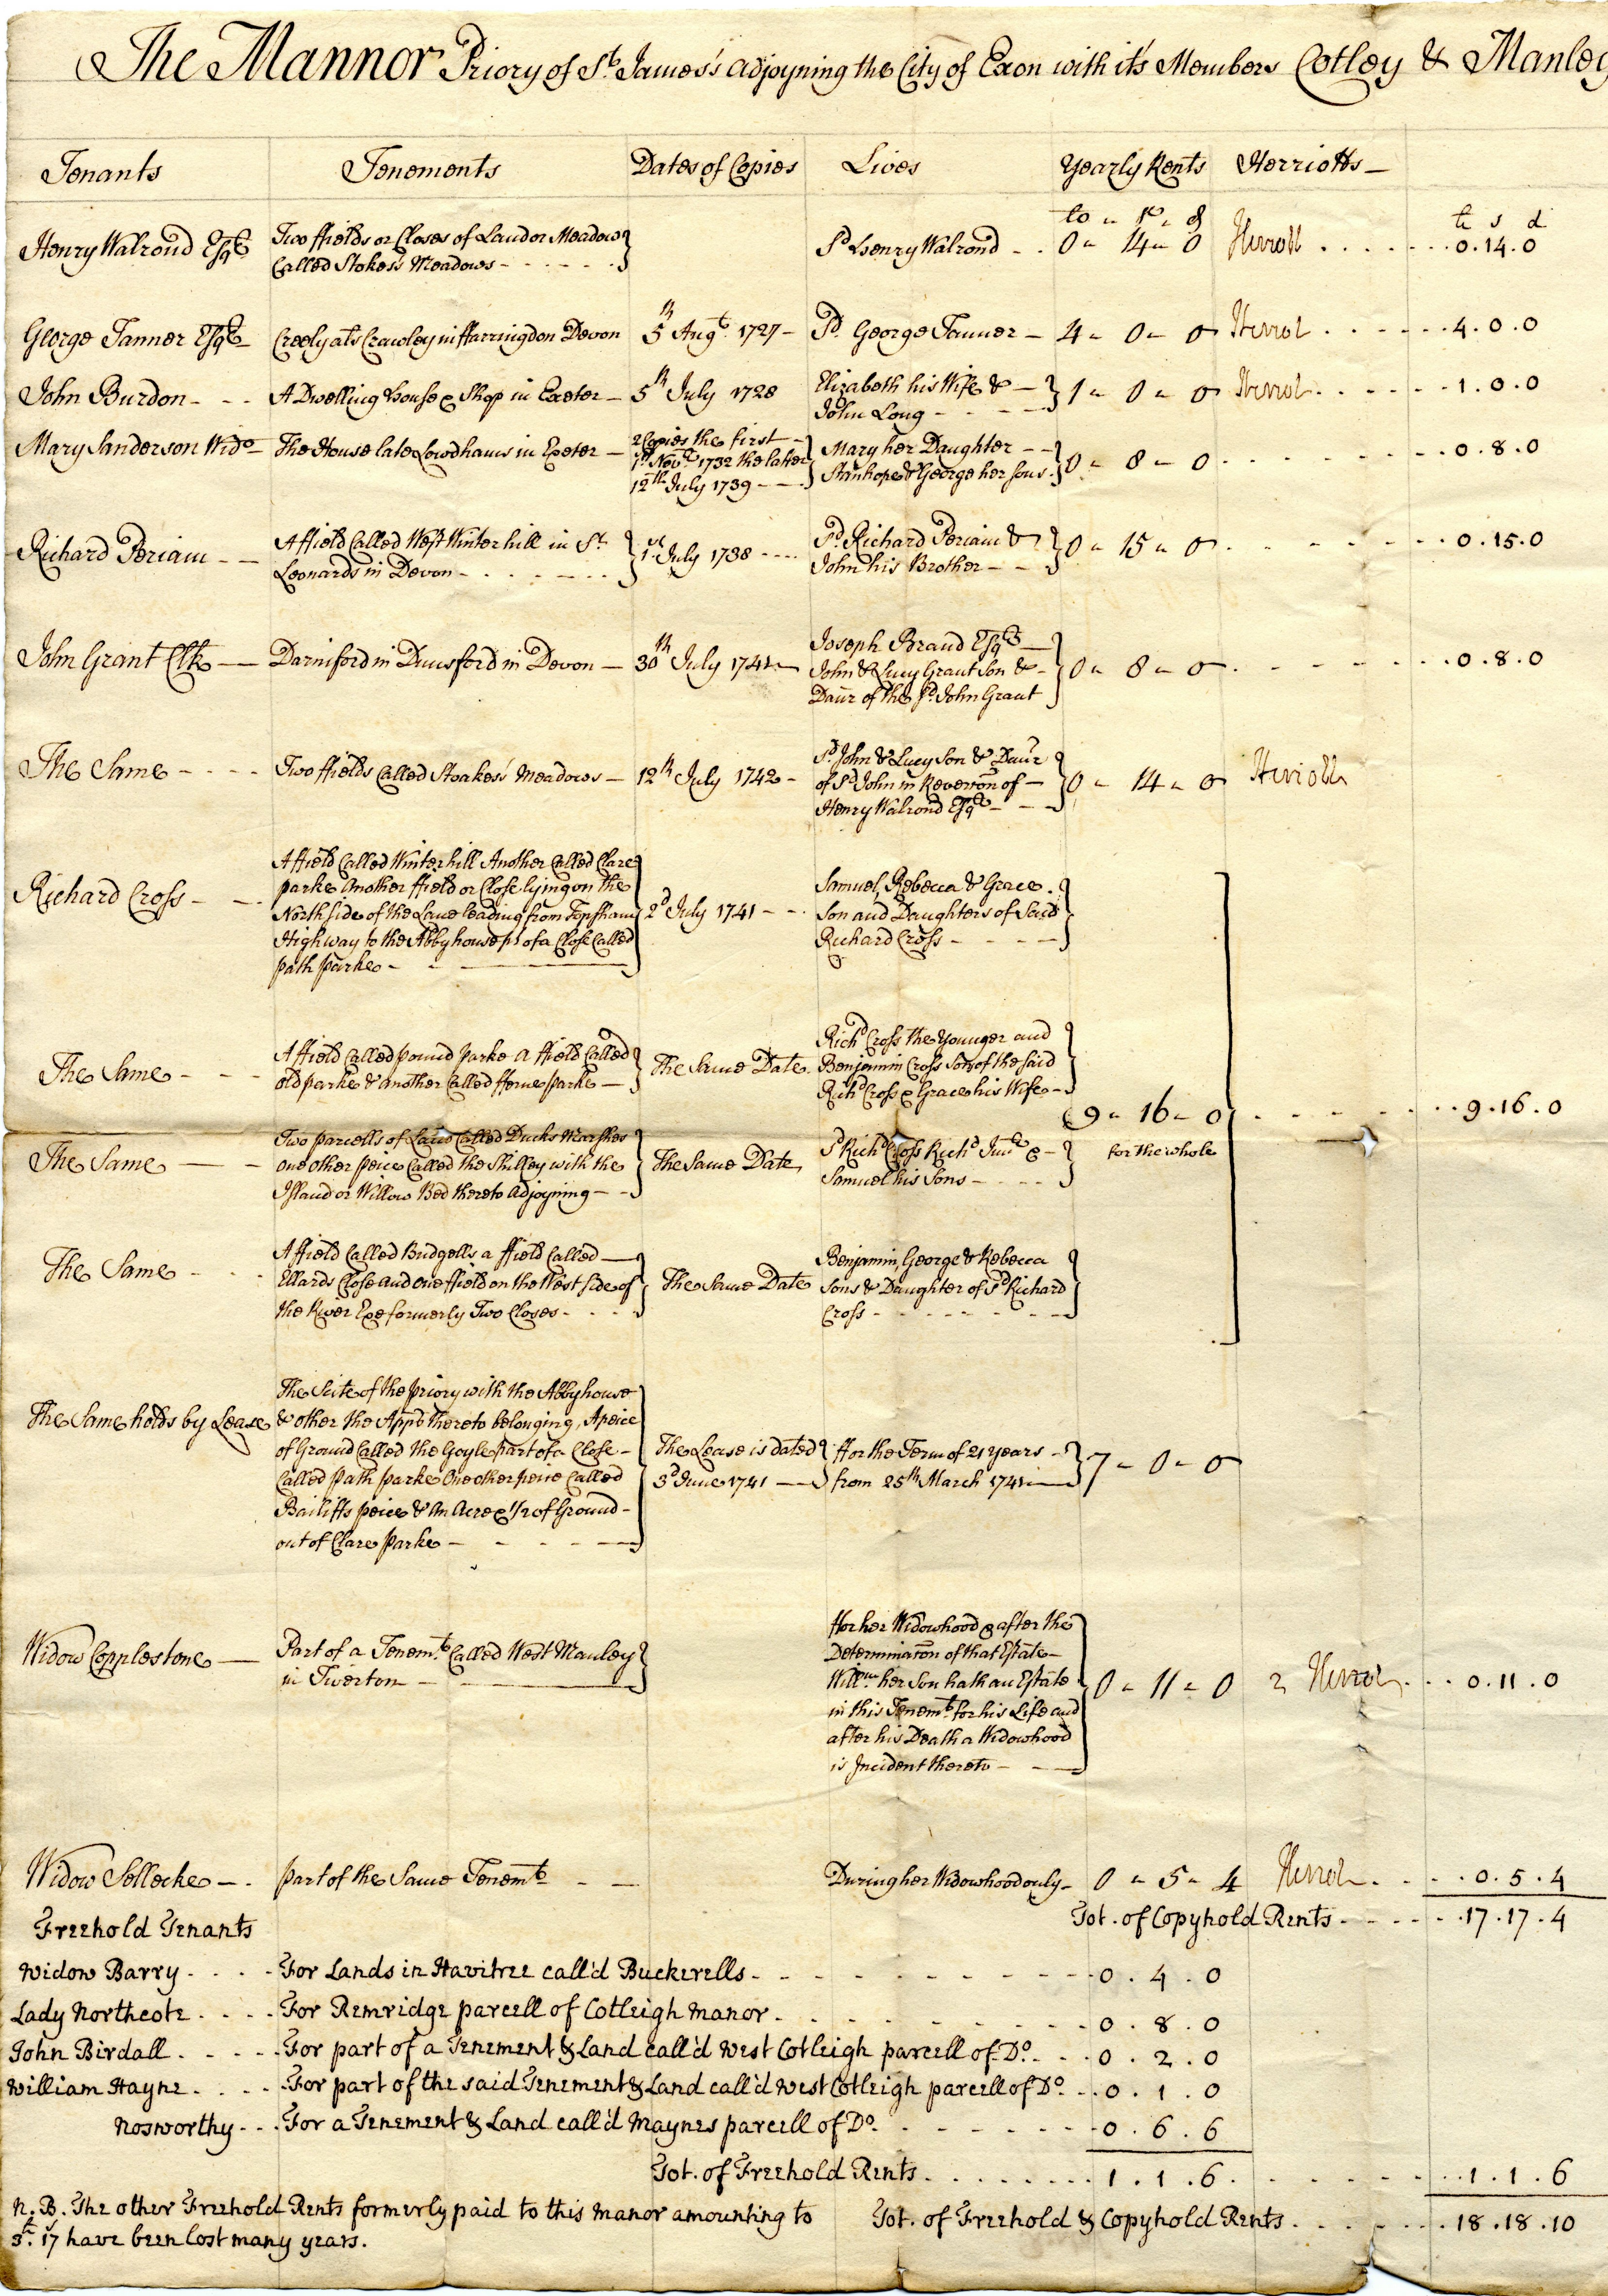 The Mannor Priory of St. James's adjoyning the City of Exon with it's Members Cotley & Manley
Tenants Tenements Dates of Copies Lives Yearly Rents Herriotts
£ s d
Henry Walrond Esqr. Two ffields or Closes of Land or Meadow
Called Stokes's Meadows - - - - Sd. Henry Walrond - - 0 - 14 - 0 Herriott . . . . . . 0 . 14 . 0
George Tanner Esqr. Creely als Crawley in ffarringdon Devon 5th Augt. 1727 - Sd. George Tanner - 4 - 0 - 0 Herriot . . . . . . 4 . 0 . 0
John Burdon - - - A Dwelling House & Shop in Exeter - 5th July 1728 Elizabeth his Wife & -
John Long - - - 1 - 0 - 0 Herriot . . . . . . 1 . 0 . 0
Mary Sanderson Wido. The House late Lowdhams in Exeter - 2 Copies the first -
1st Novr. 1732 the latter
12th July 1739 - - Mary her Daughter - -
Stanhope & George her sons - 0 - 8 - 0 . . . . . . 0 . 8 . 0
Richard Periam - - A ffield Called West Winterhill in St.
Leonards in Devon - - - - 1st July 1738 - - - - Sd. Richard Periam &
John his Brother - - - 0 - 15 - 0 . . . . . . 0 . 15 . 0
John Grant Clk - Darniford in Dunsford in Devon - 30th July 1741 - Joseph Brand Esqr. -
John & Lucy Grant Son & -
Daur. of the sd. John Grant 0 - 8 - 0 . . . . . . 0 . 8 . 0
The Same - - - - Two ffields Called Stoakes's Meadows - 12th July 1742 - Sd. John & Lucy Son & Daur.
of Sd. John in Reveron of -
Henry Walrond Esqr. - - - 0 - 14 - 0 Herriott
Richard Cross - - - A ffield Called Winterhill Another Called Clare
parke Another ffield or Close lying on the
North side of the Lane leading from Topsham
Highway to the Abbyhouse pt. of a Close Called
path parke - - - 2d July 1741 - - Samuel, Rebecca & Grace
Son and Daughters of Said
Richard Cross - - - -
The Same - - - A ffield Called pound parke a ffield Called
old parke & another Called fferne parke - The Same Date Richd. Cross the Younger and
Benjamin Cross Sons of the said
Richd. Cross & Grace his Wife -
9 - 16 - 0 . . . . . . 9 . 16 . 0
for the whole
The Same - - - Two parcells of Land Called Ducks Marshes
one other peice Called the Shilley with the
Island or Willow Bed thereto Adjoyning - - The Same Date Sd. Richd. Cross Richd. Junr. & -
Samuel his Sons - - - -
The Same - - - A ffield Called Bidgells a ffield Called -
Ellards Close and One ffield on the West side of
the River Exe formerly Two Closes - - - - The Same Date Benjamin, George & Rebecca
Sons & Daughter of Sd. Richard
Cross - - - - - -
The Same holds by Lease The Scite of the priory with the Abbyhouse
& other the Appts. thereto belonging, A peice
of Ground Called the Goyle part of a Close -
Called path parke One other peice Called
Bailiffs peice & An Acre & 1/2 of Ground -
out of Clare parke - - - - The Lease is dated
3d June 1741 - ffor the Term of 21 Years -
from 25th March 1741 - 7 - 0 - 0
Widow Copplestone - Part of a Tenemt. Called West Manley
in Tiverton - - ffor her Widowhood & after the
Determinaron of that Estate -
Willm. her Son hath an Estate
in this Tenemt. for his Life and
after his Death a Widowhood
is Incident thereto - - - 0 - 11 - 0 2 Herriots . . . 0 . 11 . 0
Widow Sellecke - . part of the Same Tenemt. - - During her Widowhood only - 0 - 5 - 4 Herriot . . . 0 . 5 . 4
Tot. of Copyhold Rents . . . . . 17 . 17 . 4
Freehold Tenants
Widow Barry . . . . For Lands in Havitree call'd Buckerells - - - - - 0 . 4 . 0
Lady Northcote . . . . For Remridge parcell of Cotleigh Manor - - - - - 0 . 8 . 0
John Birdall . . . . . For part of a Tenement & Land call'd West Cotleigh parcell of Do. . . . 0 . 2 . 0
William Hayne . . . . For part of the said Tenement & Land call'd West Cotleigh parcell of Do. . . 0 . 1 . 0
Nosworthy . . . For a Tenement & Land call'd Maynes parcell of Do. - - - - - 0 . 6 . 6
Tot. of Freehold Rents . . . . . . . . 1 . 1 . 6 . . . . . . 1 . 1 . 6
N.B. The other Freehold Rents formerly paid to this Manor amounting to
3£. 17 have been lost many years.
Tot. of Freehold & Copyhold Rents . . . . . . 18 . 18 . 10